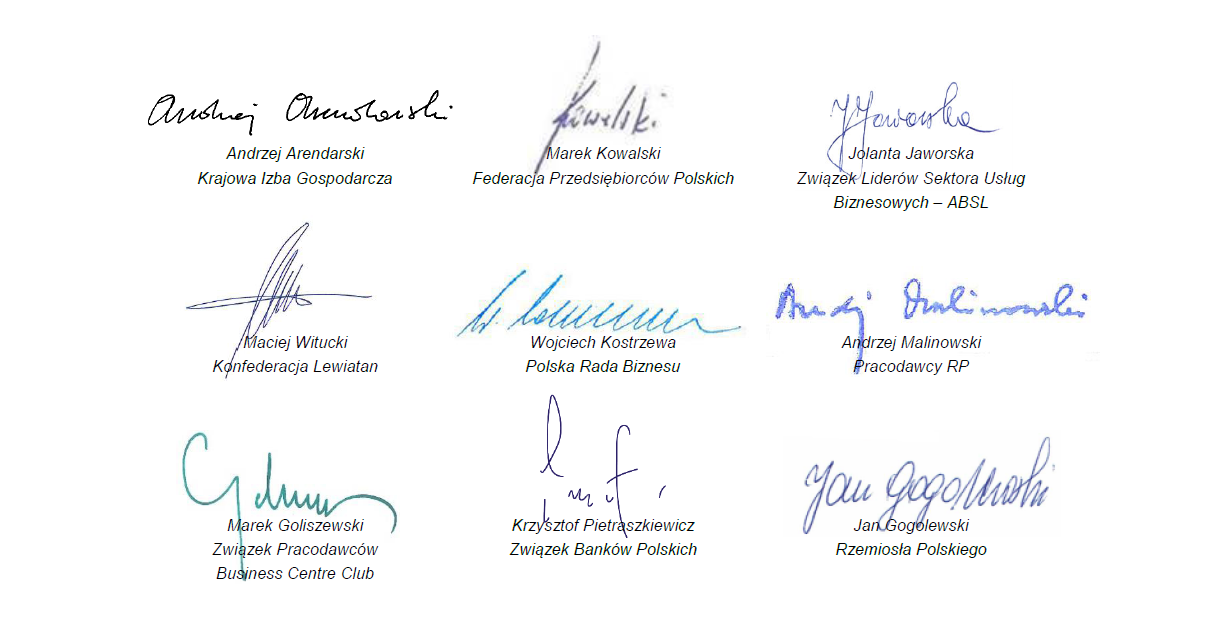 Andrzej Arendarski
Andrzej Arendarski
Krajowa Izba Gospodarcza
Kowalski
Marek Kowalski
Federacja Przedsiębiorców Polskich
JJaworska
Jolanta Jaworska
Związek Liderów Sektora Usług
Biznesowych – ABSL
Maciej Witucki
Konfederacja Lewiatan
Wojciech Kostrzewa
Polska Rada Biznesu
Andrzej Malinowski
Andrzej Malinowski
Pracodawcy RP
Marek Goliszewski
Związek Pracodawców
Business Centre Club
Krzysztof Pietraszkiewicz
Związek Banków Polskich
Jan Gogolewski
Jan Gogolewski
Rzemiosła Polskiego